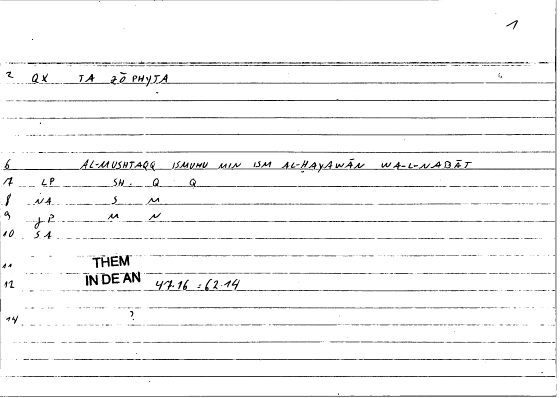 1
2 QX TA ZŌPHYTA
6 AL-MUSHTAQQ ISMUHU MIN ISM AL-ḤAYAWĀN WA-L-NABĀT
7 LP SH. Q Q
8 NA S M
9 JP M N
10 SA
11 THEM
IN DE AN
12 47.16 = 62.14
14 ?